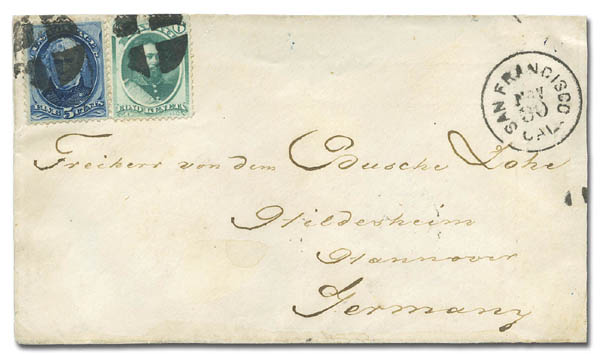 FIVE 5 CENTS
SAN FRANCISCO
NOV
30
CAL.
Freiherr von dem Busche Lohe
Hildesheim
Hannover
Germany